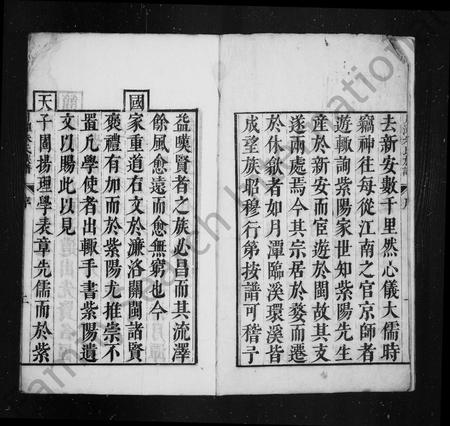 去新安數千里然心儀大儒時
竊神往每從江南之官京師者
遊輙詢紫陽家世知紫陽先生
產於新安而宦遊於閩故其支
遂兩處焉今其宗居於婺而遷
於休歙者如月潭臨溪環溪皆
成望族昭穆行第按譜可稽予
益嘆賢者之族必昌而其流澤
餘風愈遠而愈無窮也今
國
家重道右文於濂洛關閩諸賢
褒禮有加而於紫陽尤推崇不
置凡學使者出輙手書紫陽遺
文以賜此以見
天
子闡揚理學表章先儒而於紫